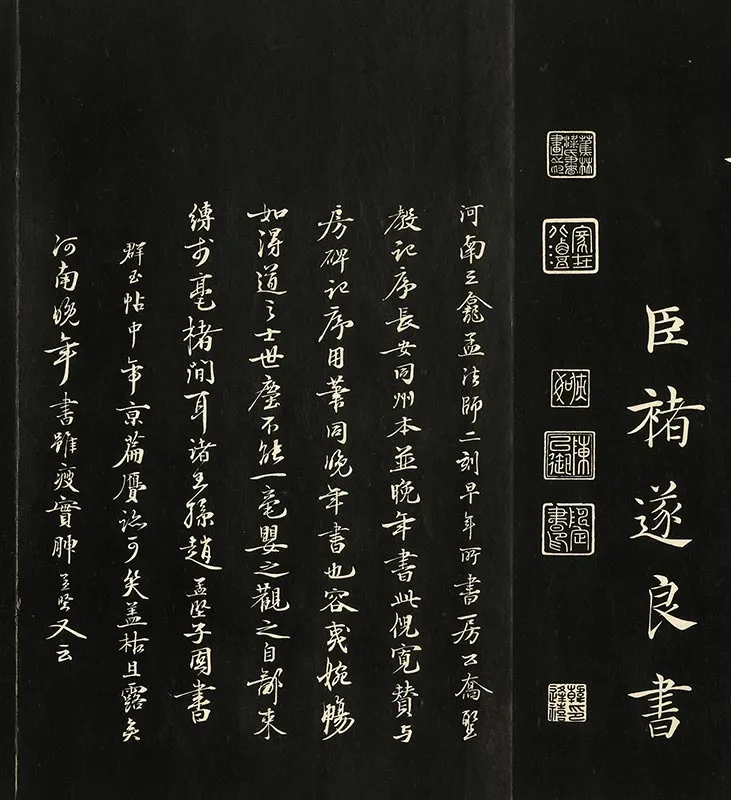 臣褚遂良書
蕉林梁氏書畫之印
河南三龕孟法師二刻早年所書房公喬聖
教記序長安同州本並晚年書此倪寬贊与
房碑記序用筆同晚年書也容夷婉暢
如得道之士世塵不能一毫嬰之觀之自鄙束
縛於毫楮間耳諸王孫趙孟堅子固書
群玉帖中帝京篇贗迹可笑蓋枯且露矣
河南晚年書雖瘦實腴孟堅又云